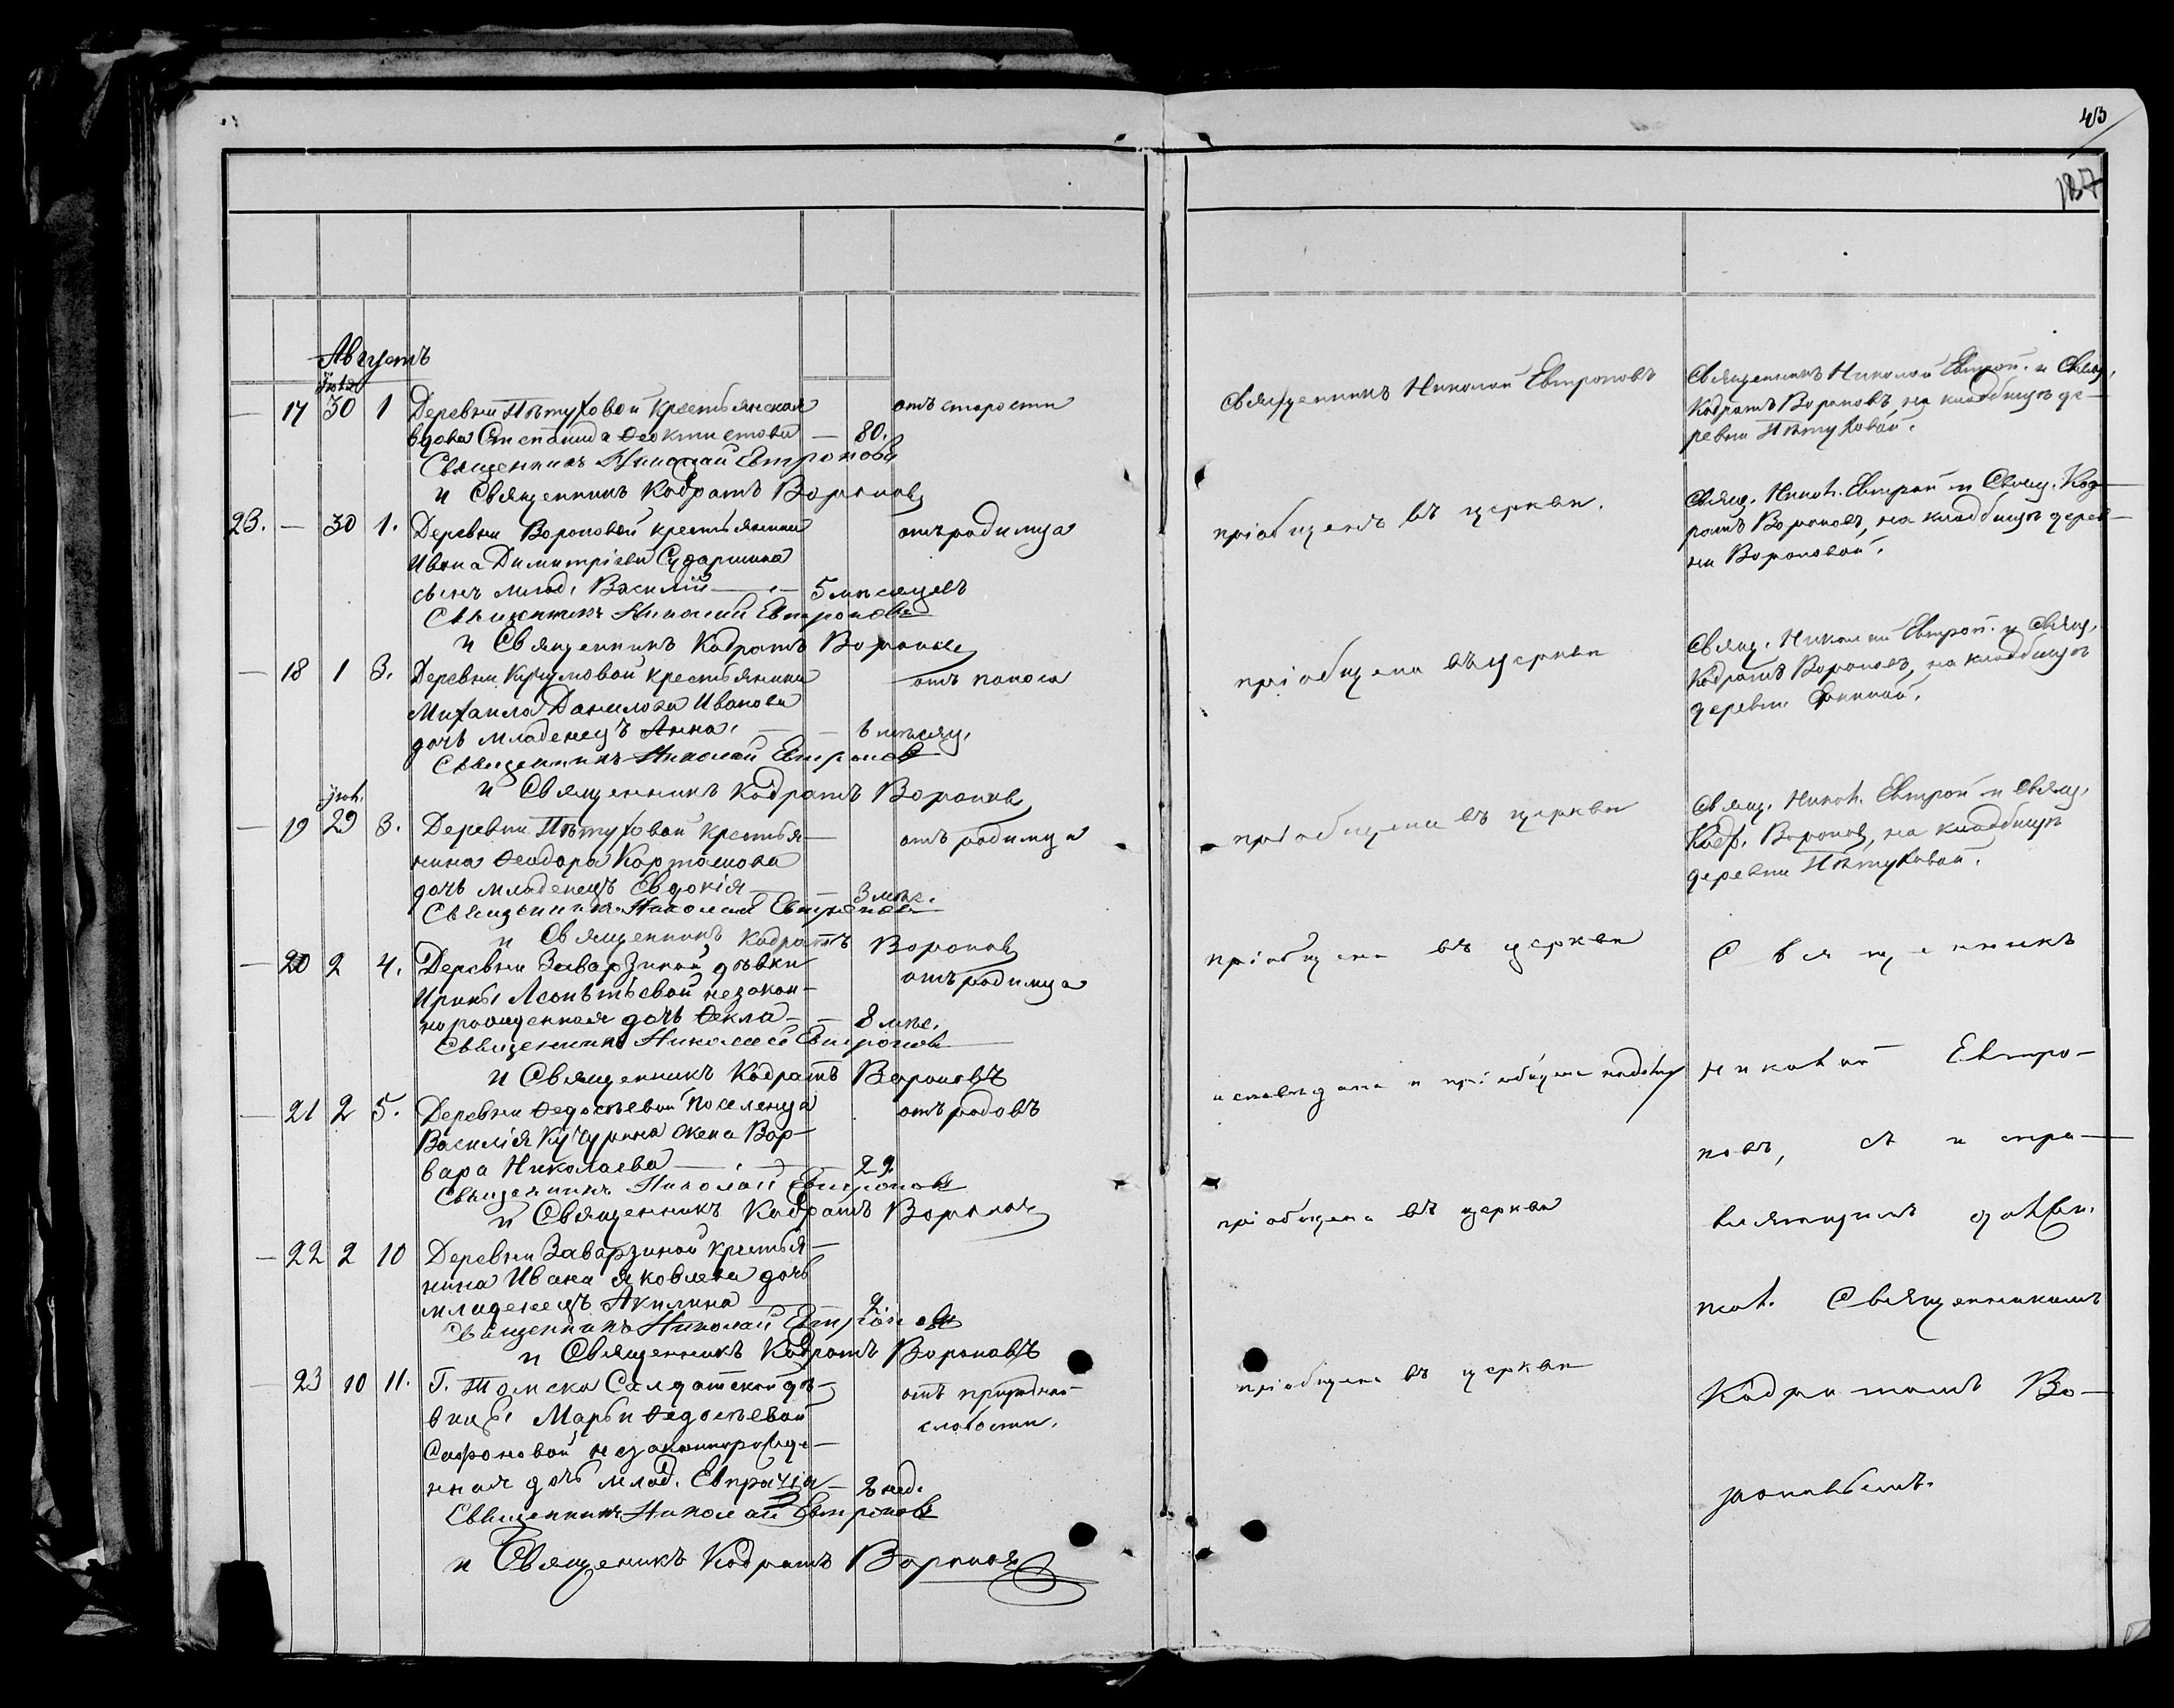 43
137
Августъ
Іюля
17 30 1 Деревни Пѣтуховой крестьянская отъ старости
вдова Степанида Ѳеоктистова — 80.
Священникъ Николай Евтроповъ
и Священникъ Кодратъ Вороновъ
23. — 30 1. Деревни Вороновой крестьянина отъ родимца
Ивана Димитріева Сударкина
сынъ млад. Василій — 5 мѣсяцевъ
Священникъ Николай Евтроповъ
и Священникъ Кодратъ Вороновъ
— 18 1 3. Деревни крестьянина отъ поноса
Михаила Данилова Иванова
дочь младенецъ Анна. — 6 мѣсяц.
Священникъ Николай Евтроповъ
и Священникъ Кодратъ Вороновъ
іюл.
— 19 29 3. Деревни Пѣтуховой крестья- отъ родимца
нина Ѳеодора Карташова
дочь младенецъ Евдокія — 3 мѣс.
Священникъ Николай Евтроповъ
и Священникъ Кодратъ Вороновъ
— 20 2 4. Деревни Заварзиной дѣвки отъ родимца
Ирины Леонтьевой незакон-
норожденная дочь Ѳекла — 8 мѣс.
Священникъ Николай Евтроповъ
и Священникъ Кодратъ Вороновъ
— 21 2 5. Деревни Ѳедосѣевой поселенца отъ родовъ
Василія Кучурина жена Вар-
вара Николаева — 22
Священникъ Николай Евтроповъ
и Священникъ Кодратъ Вороновъ
— 22 2 10 Деревни Заварзиной крестья-
нина Ивана Яковлева дочь
младенецъ Акилина — 2
Священникъ Николай Евтроповъ
и Священникъ Кодратъ Вороновъ
— 23 10 11. Г. Томска Салдатской дѣ- отъ природной
вицы Марьи Ѳедосѣевой слабости.
Сафоновой незаконнорожде-
нная дочь млад. — 2 нед.
Священникъ Николай Евтроповъ
и Священникъ Кодратъ Вороновъ
Священникъ Николай Евтроповъ
пріобщенъ въ церкви.
пріобщена въ церкви
пріобщена въ церкви
пріобщена въ церкви
исповѣдана и пріобщена
пріобщена въ церкви
пріобщена въ церкви
Священникъ Николай Евтроп. и Свящ.
Кодратъ Вороновъ, на кладбищѣ де-
ревни Пѣтуховой.
Свящ. Никол. Евтроп и Свящ. Код-
ратъ Вороновъ, на кладбищѣ дерев-
ни Вороновой.
Свящ. Николай Евтроп. и Свящ.
Кодратъ Вороновъ, на кладбищѣ
деревни
Свящ. Никол. Евтроп и Свящ.
Кодр. Вороновъ, на кладбищѣ
деревни Пѣтуховой.
Священникъ
Николай Евтро-
повъ, съ испра-
вляющимъ долж.
псал. Священникомъ
Кодратомъ Во-
роновымъ.